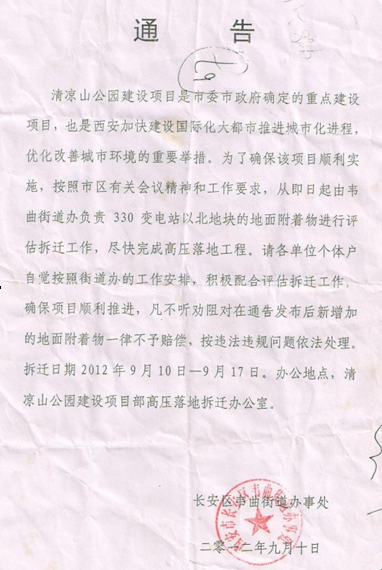 通告
清凉山公园建设项目是市委市政府确定的重点建设
项目，也是西安加快建设国际化大都市推进城市化进程，
优化改善城市环境的重要举措。为了确保该项目顺利实
施，按照市区有关会议精神和工作要求，从即日起由韦
曲街道办负责 330 变电站以北地块的地面附着物进行评
估拆迁工作，尽快完成高压落地工程。请各单位个体户
自觉按照街道办的工作安排，积极配合评估拆迁工作，
确保项目顺利推进，凡不听劝阻对在通告发布后新增加
的地面附着物一律不予赔偿，按违法违规问题依法处理。
拆迁日期 2012 年 9 月 10 日—9 月 17 日。办公地点，清
凉山公园建设项目部高压落地拆迁办公室。
长安区韦曲街道办事处
二零一二年九月十日